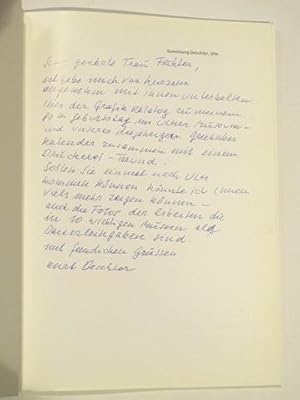 Sammlung Deschler, Ulm
Sehr geehrte Frau
ich habe mich von Herzen
angenehm mit Ihnen unterhalten
hier der Grafik Katalog zu meinem
Geburtstag im Ulmer Museum -
und unseren diesjährigen
Kalender zusammen mit einem
Druckerei - Freund.
Sollten Sie einmal nach Ulm
kommen können könnte ich Ihnen
viels mehr zeigen können -
auch die Fotos der Arbeiten die
in 10 wichtigen Museen als
Dauerleihgaben sind
mit freundlichen Grüssen
Kurt Deschler